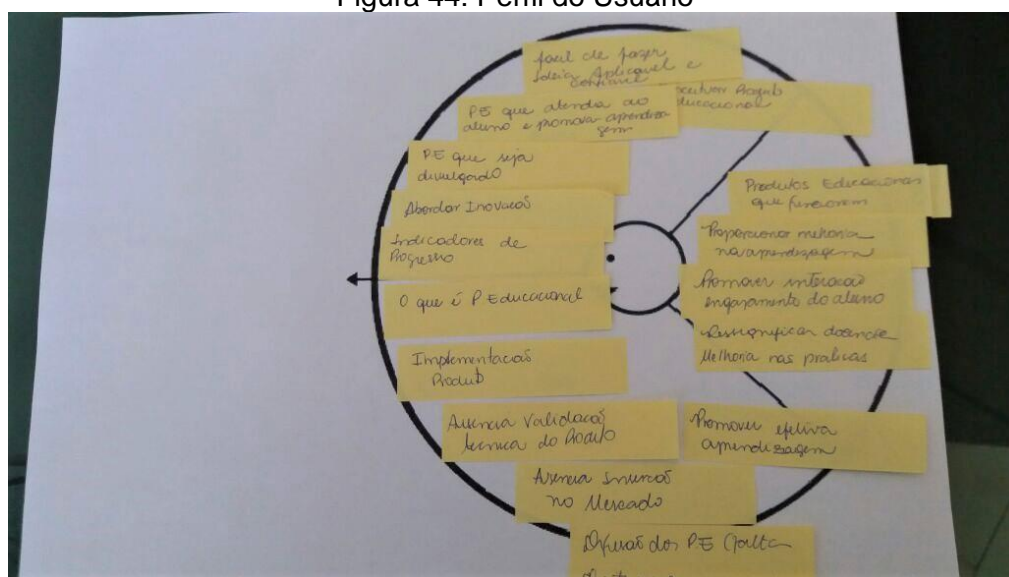 Figura 44: Perfil do Usuário
facil de fazer
Ideia Aplicavel e
confiavel
Produto
Educacional
PE que atenda ao
aluno e promova aprendiza
gem
PE que seja
divulgado
Abordar Inovacaõ
Indicadores de
Progresso
O que é P Educacional
Implementacaõ
Produto
Ausencia Validacaõ
tecnica do Produto
Ausencia
no Mercado
Difusaõ dos PE (falta
Produtos Educacionais
que funcionem
Proporcionar melhoria
na aprendizagem
Promover interacaõ
engajamento do aluno
Ressignificar docencia
Melhoria nas praticas
Promover efetiva
aprendizagem